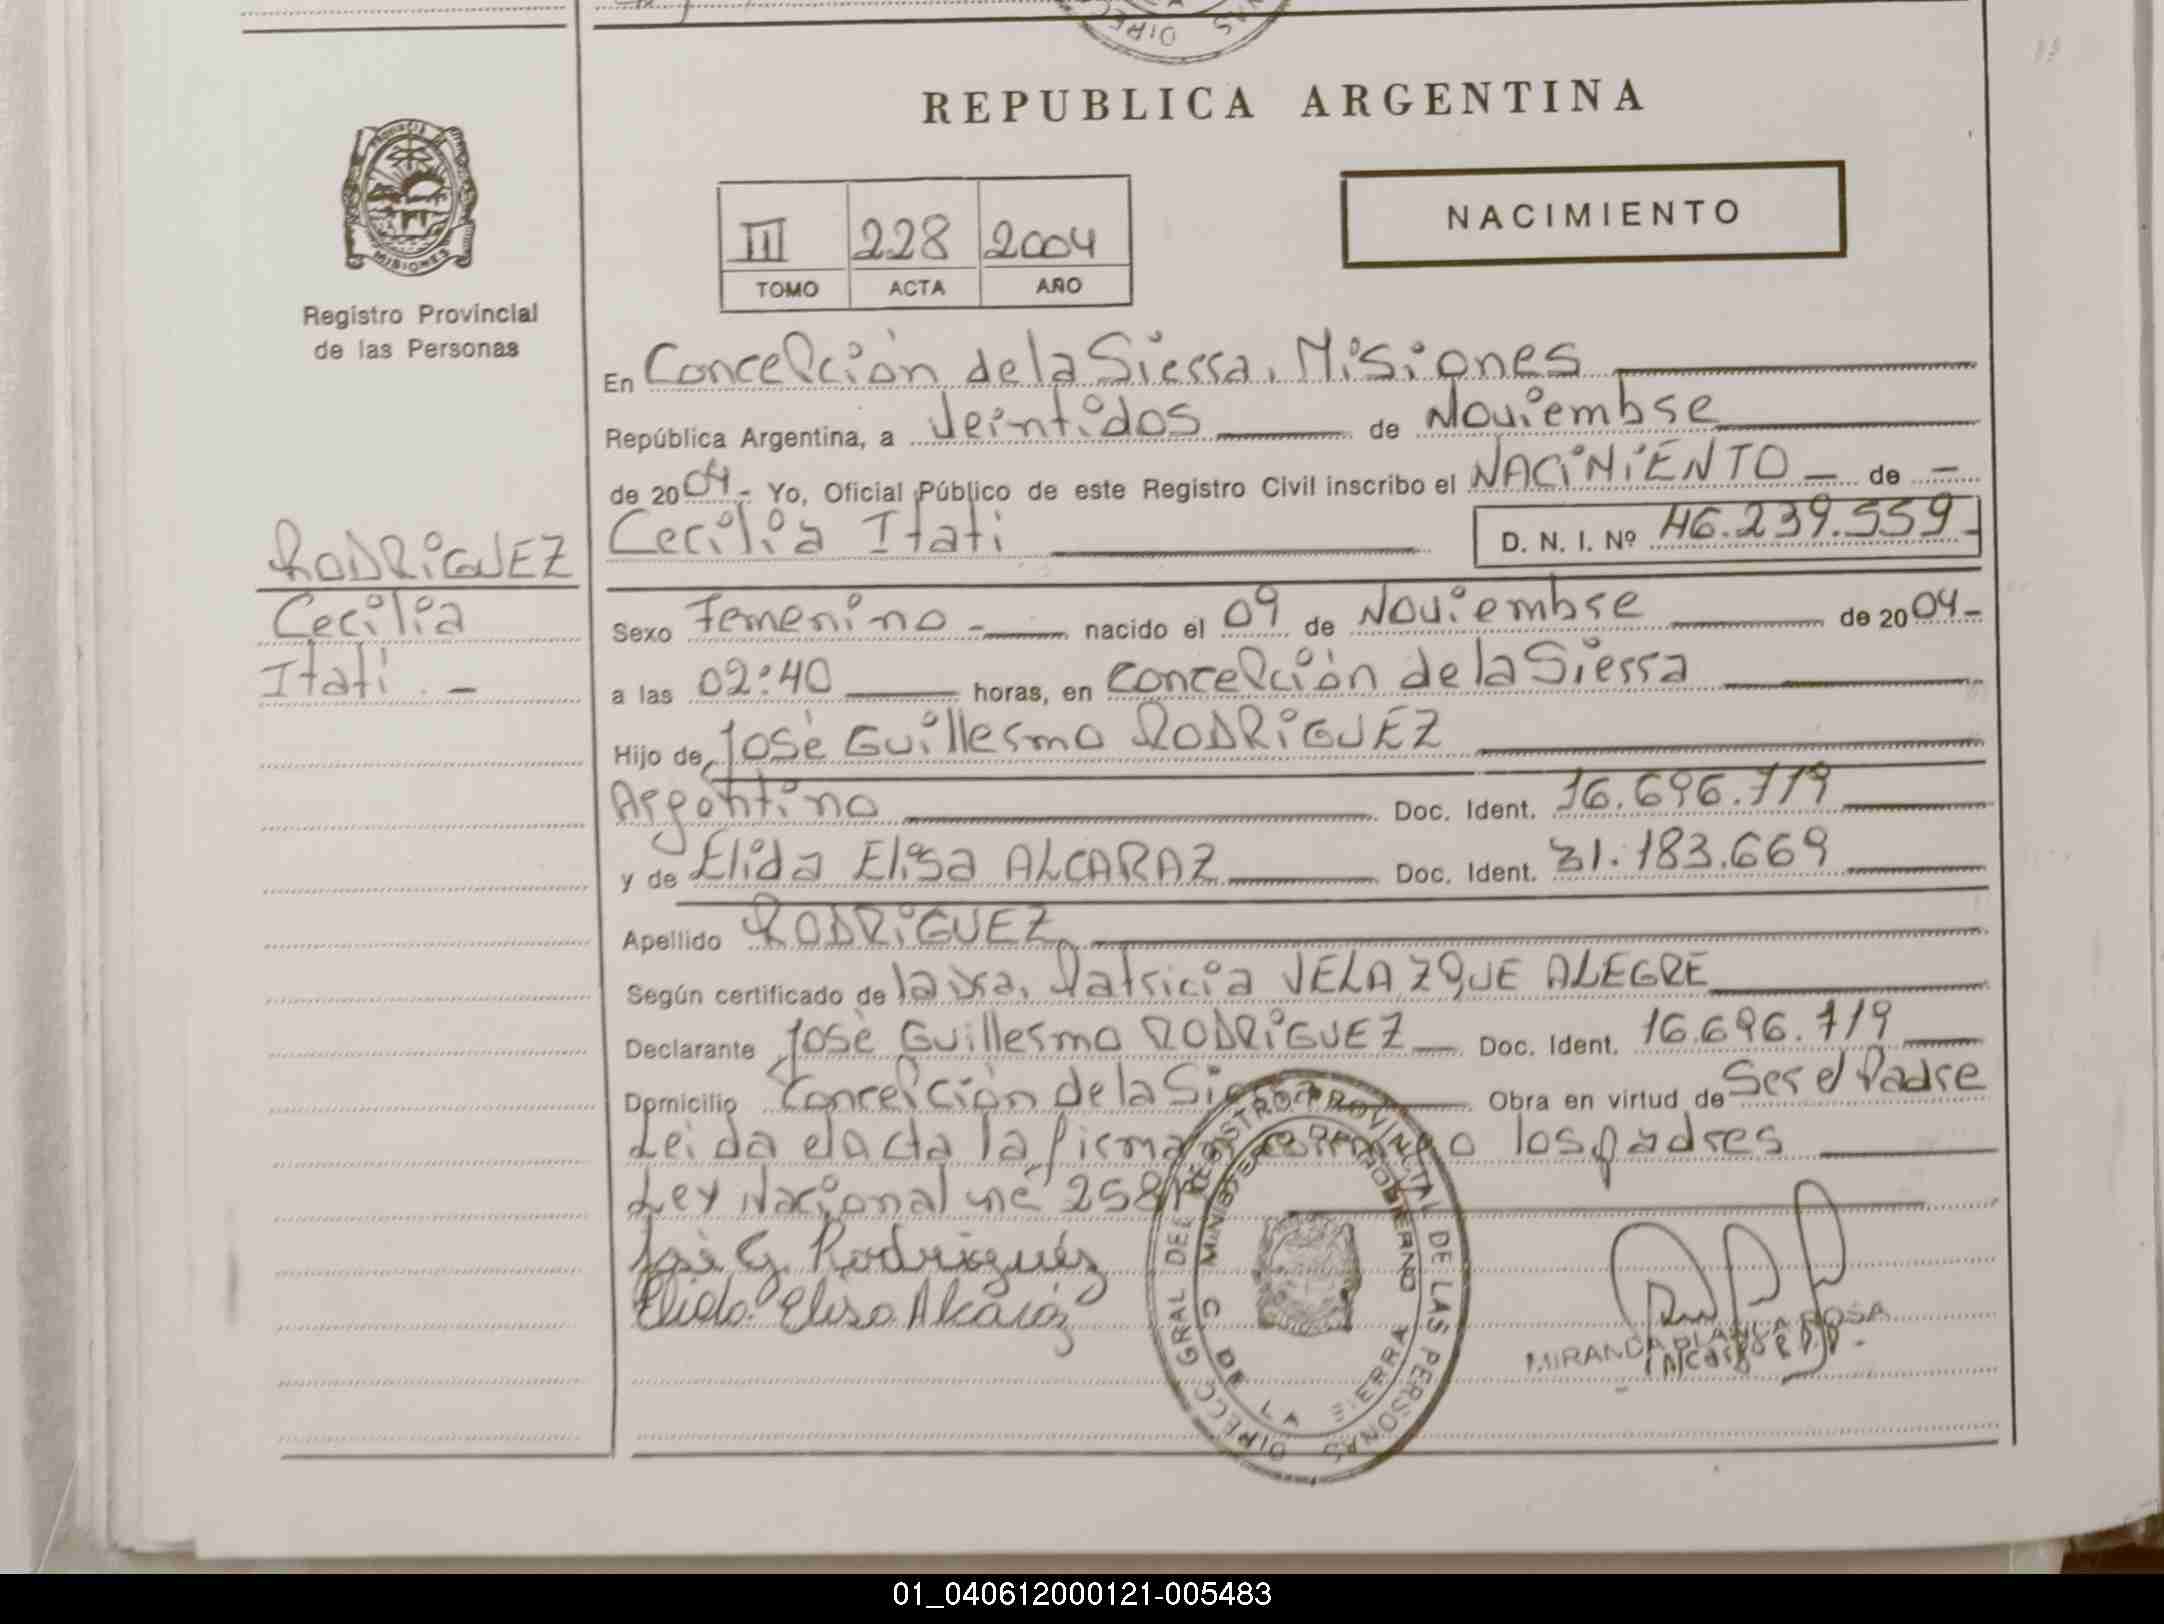 REPUBLICA ARGENTINA
PROVINCIA DE
MISIONES
Registro Provincial
de las Personas
III 228 2004
TOMO ACTA AÑO
NACIMIENTO
En Concepción de la Sierra, Misiones
República Argentina, a Veintidos de Noviembre
de 2004- Yo, Oficial Público de este Registro Civil inscribo el NACIMIENTO - de -
Cecilia Itati D. N. I. Nº 46.239.559-
RODRIGUEZ
Cecilia
Itati. -
Sexo Femenino - nacido el 09 de Noviembre de 2004-
a las 02:40 horas, en Concepción de la Sierra
Hijo de José Guillermo RODRIGUEZ
Argentino Doc. Ident. 16.696.719
y de Elida Elisa ALCARAZ Doc. Ident. 31.183.669
Apellido RODRIGUEZ
Según certificado de la Dra. Patricia VELAZQUE ALEGRE
Declarante José Guillermo RODRIGUEZ Doc. Ident. 16.696.719
Domicilio Concepción de la Sierra Obra en virtud de Ser el Padre
Leida el acta la firma los padres
Ley Nacional
José G. Rodriguéz
Elida Elisa Alcaráz
DIRECC GRAL DEL REGISTRO PROVINCIAL DE LAS PERSONAS
MINISTERIO DE GOBIERNO
C DE LA SIERRA
MIRANDA BLANCA ROSA
01_040612000121-005483